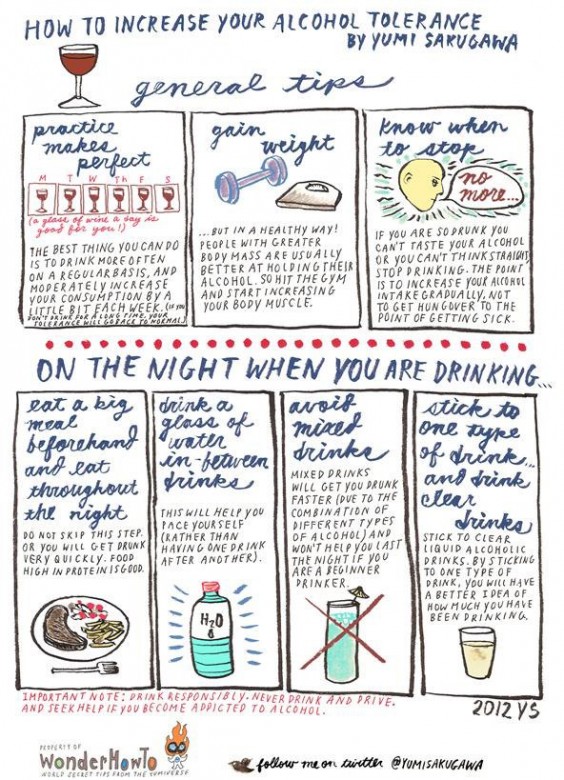 HOW TO INCREASE YOUR ALCOHOL TOLERANCE
BY YUMI SAKUGAWA
general tips
practice
makes
perfect
M T W Th F S
(a glass of wine a day is
good for you!)
THE BEST THING YOU CAN DO
IS TO DRINK MORE OFTEN
ON A REGULAR BASIS, AND
MODERATELY INCREASE
YOUR CONSUMPTION BY A
LITTLE BIT EACH WEEK. (IF YOU
DON'T DRINK FOR A LONG TIME, YOUR
TOLERANCE WILL GO BACK TO NORMAL.)
gain
weight
...BUT IN A HEALTHY WAY!
PEOPLE WITH GREATER
BODY MASS ARE USUALLY
BETTER AT HOLDING THEIR
ALCOHOL. SO HIT THE GYM
AND START INCREASING
YOUR BODY MUSCLE.
know when
to stop
no
more...
IF YOU ARE SO DRUNK YOU
CAN'T TASTE YOUR ALCOHOL
OR YOU CAN'T THINK STRAIGHT,
STOP DRINKING. THE POINT
IS TO INCREASE YOUR ALCOHOL
INTAKE GRADUALLY, NOT
TO GET HUNGOVER TO THE
POINT OF GETTING SICK.
ON THE NIGHT WHEN YOU ARE DRINKING...
eat a big
meal
beforehand
and eat
throughout
the night
DO NOT SKIP THIS STEP.
OR YOU WILL GET DRUNK
VERY QUICKLY. FOOD
HIGH IN PROTEIN IS GOOD.
drink a
glass of
water
in-between
drinks
THIS WILL HELP YOU
PACE YOURSELF
(RATHER THAN
HAVING ONE DRINK
AFTER ANOTHER).
H2O
avoid
mixed
drinks
MIXED DRINKS
WILL GET YOU DRUNK
FASTER (DUE TO THE
COMBINATION OF
DIFFERENT TYPES
OF ALCOHOL) AND
WON'T HELP YOU LAST
THE NIGHT IF YOU
ARE A BEGINNER
DRINKER.
stick to
one type
of drink...
and drink
clear
drinks
STICK TO CLEAR
LIQUID ALCOHOLIC
DRINKS. BY STICKING
TO ONE TYPE OF
DRINK, YOU WILL HAVE
A BETTER IDEA OF
HOW MUCH YOU HAVE
BEEN DRINKING.
IMPORTANT NOTE: DRINK RESPONSIBLY. NEVER DRINK AND DRIVE.
AND SEEK HELP IF YOU BECOME ADDICTED TO ALCOHOL.
2012 YS
PROPERTY OF
WonderHowTo
WORLD SECRET TIPS FROM THE YUMIVERSE
follow me on twitter @YUMISAKUGAWA